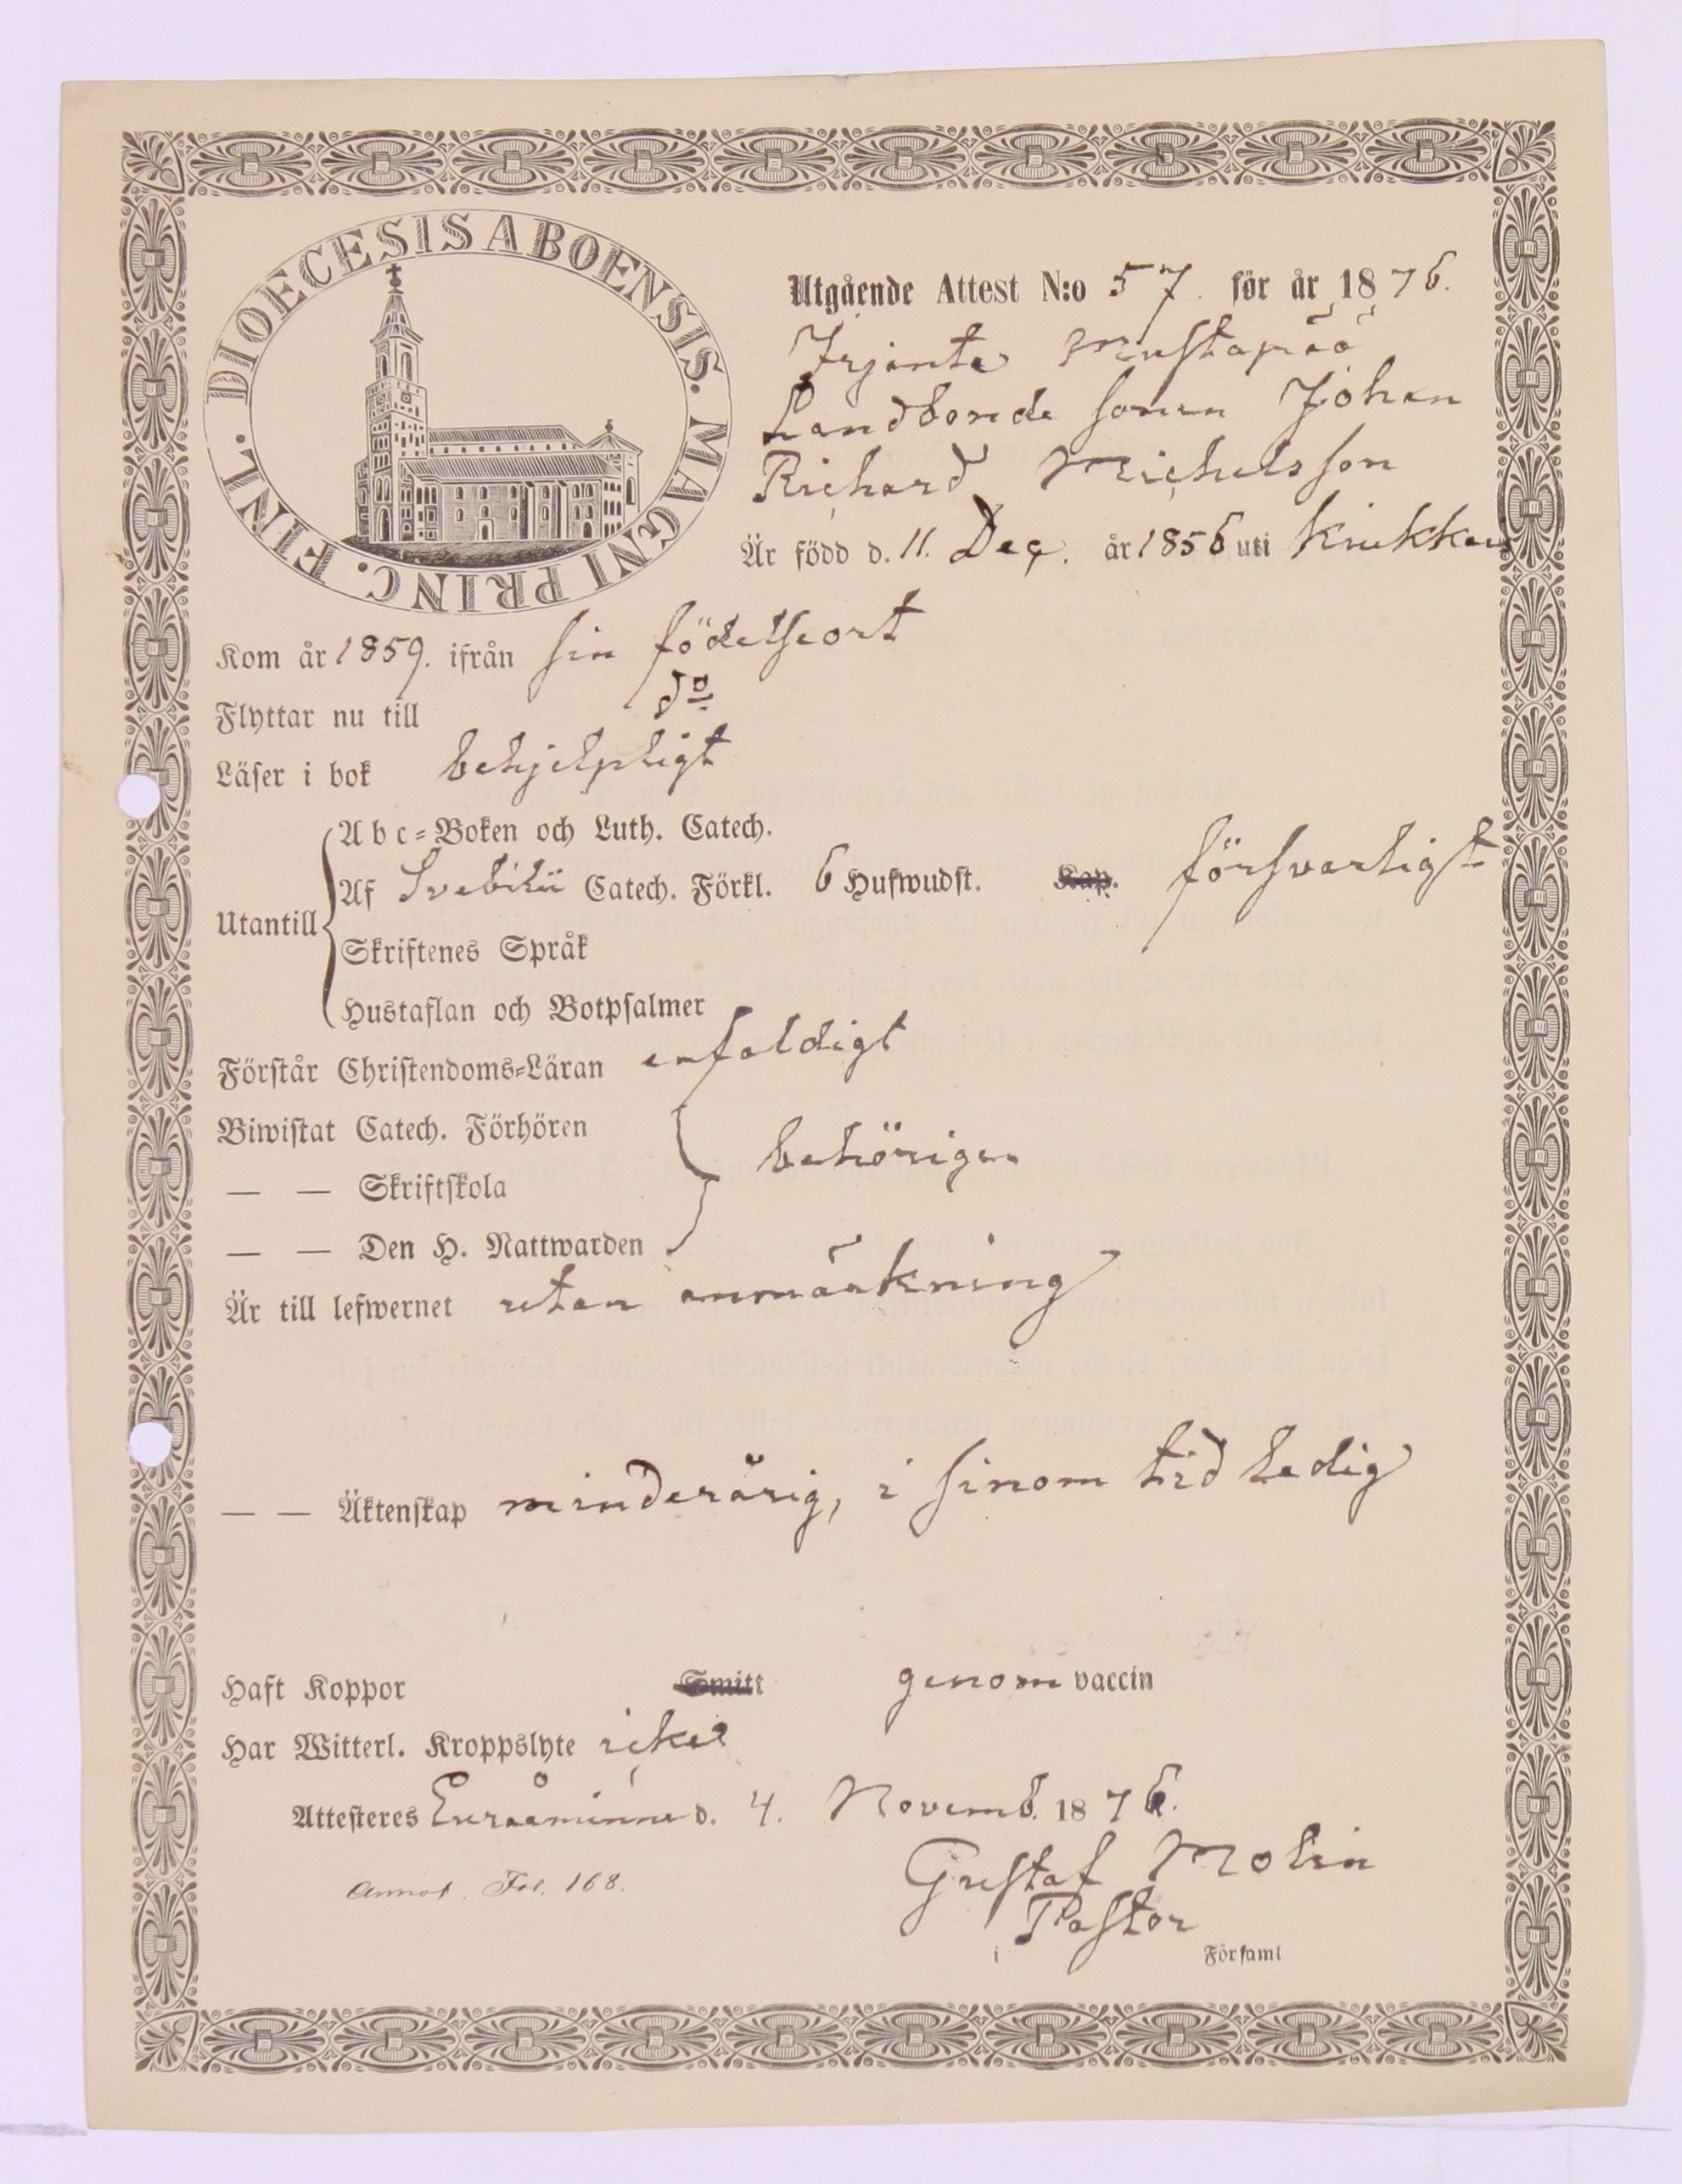 DIOECESIS ABOENSIS. MAGNI PRINC. FINL.
Utgående Attest N:o 57. för år 1876.
Irjanta Mustapää
Landbonde sonen Johan
Richard Michelsson
Är född d. 11. Dec. år 1856 uti Kiukkais
Kom år 1859. ifrån sin födelseort
Flyttar nu till do
Läser i bok behjelpligt
Utantill
Abc-Boken och Luth. Catech.
Af Svebilii Catech. Förkl. 6 Hufwudst. Kap. försvarligt
Skriftenes Språk
Hustaflan och Botpsalmer
Förstår Christendoms-Läran enfaldigt
Biwistat Catech. Förhören
— — Skriftskola behörigen
— — Den H. Nattwarden
Är till lefwernet utan anmärkning
— — Äktenskap minderårig, i sinom tid ledig
Haft Koppor Smitt genom vaccin
Har Witterl. Kroppslyte icke
Attesteres Euraåminne d. 4. Novemb. 1876.
Annot. Fol. 168.
Gustaf Molin
Pastor
i Församl